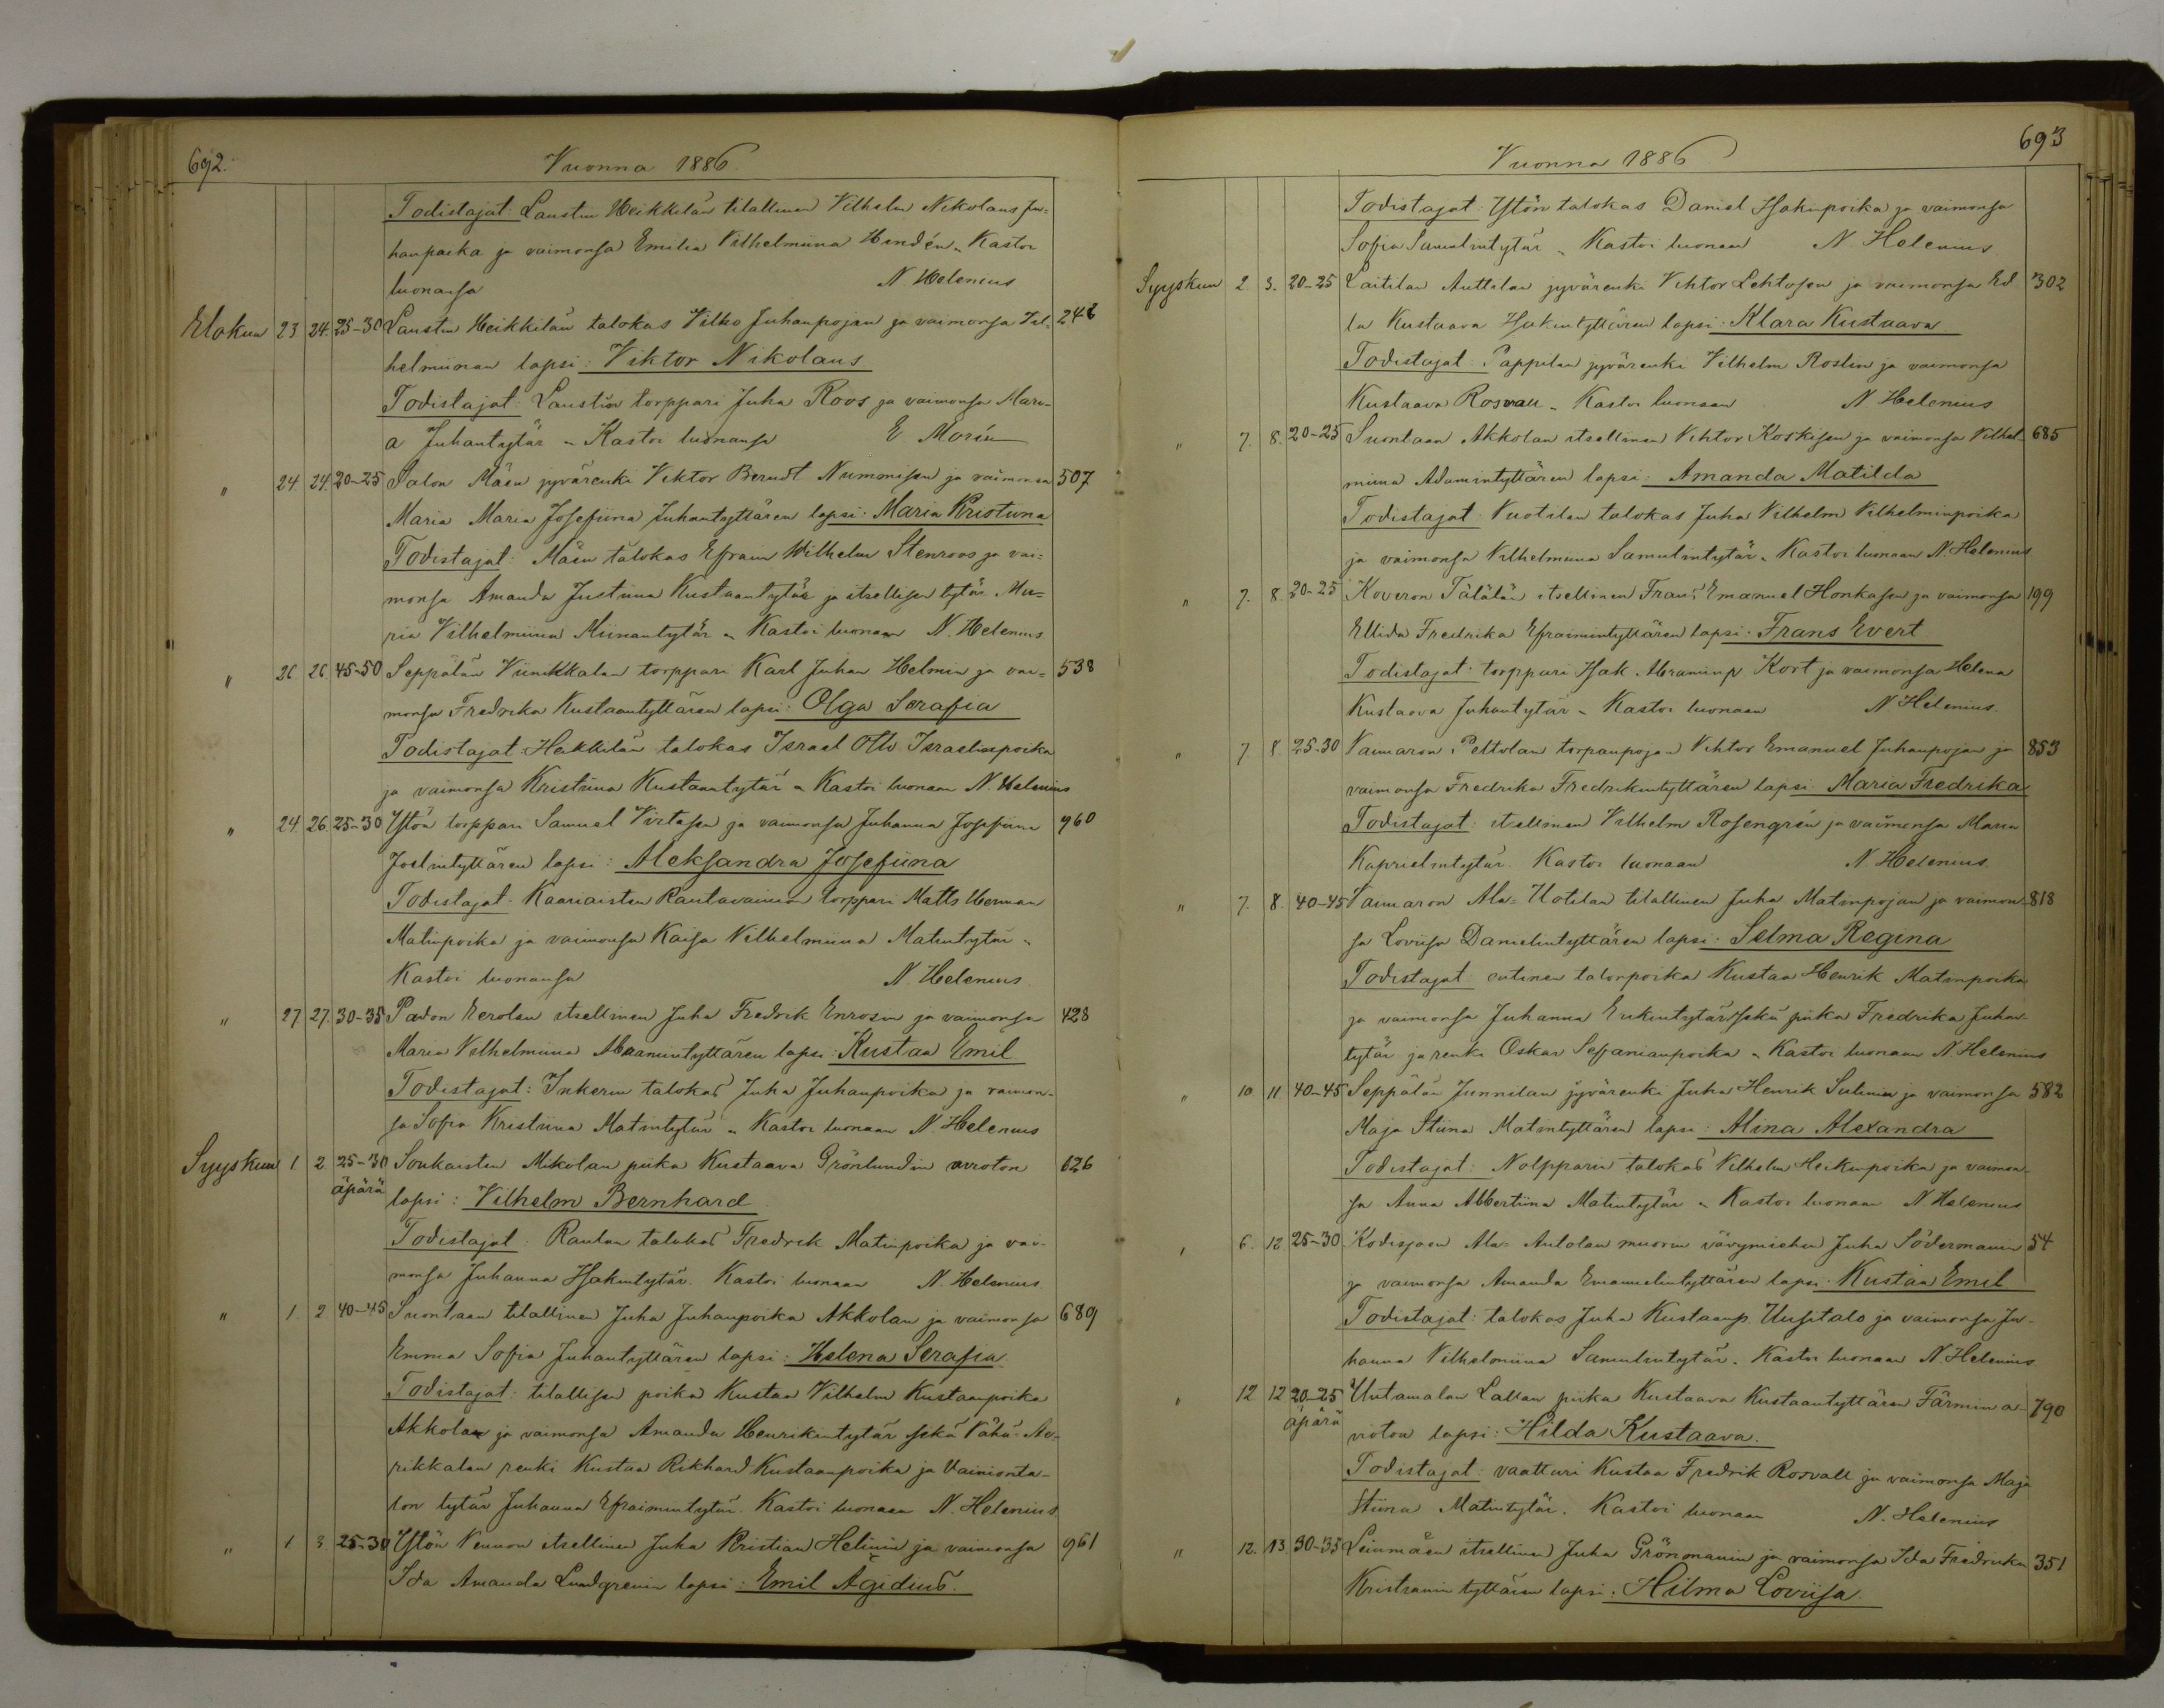 692.
Vuonna 1886.
Todistajat: Laustin Heikkilän tilallinen Vilhelm Nikolaus Ju=
hanpoika ja vaimonsa Emilia Vilhelmiina Hindén. Kastoi
luonansa N Helenius
Elokuu 23. 24. 25-30 Laustin Heikkilän talokas Vilho Juhanpojan ja vaimonsa Vil= 248
helmiinan lapsi: Viktor Nikolaus
Todistajat: Laustin torppari Juha Roos ja vaimonsa Mari=
a Juhantytär. Kastoi luonansa E Morén
" 24. 24. 20-25 Salon Mäen jyvärenki Viktor Berndt Nummisen ja vaimonsa 507
Maria Maria Josefiina Juhantyttären lapsi: Maria Kristiina
Todistajat: Mäen talokas Efraim Vilhelm Stenroos ja vai=
monsa Amanda Justiina Kustaantytär ja itsellisen tytär Ma=
ria Vilhelmiina Miinantytär. Kastoi luonaan N. Helenius
" 26 26 45-50 Seppälän Viinikkalan torppari Karl Juhan Helmin ja vai= 538
monsa Fredrika Kustaantyttären lapsi: Olga Serafia
Todistajat: Heikkilän talokas Israel Otto Israelinpoika
ja vaimonsa Kristiina Kustaantytär. Kastoi luonaan N. Helenius
" 24. 26. 25-30 Ystön torppari Samuel Virtasen ja vaimonsa Juhanna Josefiina 960
Joelintyttären lapsi: Aleksandra Josefiina
Todistajat: Kaariaisten Rautavainion torppari Matts Herman
Matinpoika ja vaimonsa Kaisa Vilhelmiina Matintytär.
Kastoi luonansa N. Helenius
" 27. 27. 30-35 Padon Eerolan itsellinen Juha Fredrik Enrosin ja vaimonsa 428
Maria Vilhelmiina Abramintyttären lapsi: Kustaa Emil
Todistajat: Inkerin talokas Juha Juhanpoika ja vaimon-
sa Sofia Kristiina Matintytär. Kastoi luonaan N. Helenius
Syyskuu 1 2 25-30 Soukaisten Mikolan piika Kustaava Grönlundin avioton 626
äpärä lapsi: Vilhelm Bernhard
Todistajat: Raulan talokas Fredrik Matinpoika ja vai-
monsa Juhanna Isakintytär. Kastoi luonaan N. Helenius
" 1. 2 40-45 Suontaan tilallinen Juha Juhanpoika Akkolan ja vaimonsa 689
Emma Sofia Juhantyttären lapsi: Helena Serafia
Todistajat: tilallisen poika Kustaa Vilhelm Kustaanpoika
Akkolan ja vaimonsa Amanda Henrikintytär sekä Vähä-
rikkalan renki Kustaa Rikhard Kustaanpoika ja Vainionta-
lon tytär Juhanna Efraimintytär. Kastoi luonaan N. Helenius
" 1 3. 25-30 Ystön Vennon itsellinen Juha Kristian Helinin ja vaimonsa 961
Ida Amanda Lundgrenin lapsi: Emil Ägidius.
693
Vuonna 1886
Todistajat: Ystön talokas Daniel Isakinpoika ja vaimonsa
Sofia Samulintytär. Kastoi luonaan N. Helenius
Syyskuu 2. 3. 20-25 Laitilan Anttilan jyvärenki Vihtor Lehtosen ja vaimonsa Ed 302
la Kustaava Isakintyttären lapsi: Klara Kustaava
Todistajat: Pappilan jyvärenki Vilhelm Roslin ja vaimonsa
Kustaava Rosvall. Kastoi luonaan N Helenius
" 7. 8. 20-25 Suontaan Akkolan itsellinen Vihtor Koskisen ja vaimonsa Vilhel- 685
miina Adamintyttären lapsi: Amanda Matilda
Todistajat: Vuotilan talokas Juha Vilhelm Vilhelminpoika
ja vaimonsa Vilhelmiina Samulintytär. Kastoi luonaan N. Helenius
" 7. 8. 20-25 Koveron Tälälän itsellinen Frans Emanuel Honkasen ja vaimonsa 199
Ellida Fredrika Efraimintyttären lapsi: Frans Evert
Todistajat: torppari Isak Abraminp Kort ja vaimonsa Helena
Kustaava Juhantytär. Kastoi luonaan N Helenius.
" 7. 8. 25-30 Vaimaron Peltolan torpanpojan Vihtor Emanuel Juhanpojan ja 853
vaimonsa Fredrika Fredrikintyttären lapsi: Maria Fredrika
Todistajat: itsellinen Vilhelm Rosengrén ja vaimonsa Maria
Kaprielintytär. Kastoi luonaan N Helenius.
" 7. 8. 40-45 Vaimaron Ala-Uotilan tilallinen Juha Matinpojan ja vaimon- 818
sa Loviisa Danielintyttären lapsi: Selma Regina
Todistajat: entinen talonpoika Kustaa Henrik Matinpoika
ja vaimonsa Juhanna Erikintytär sekä piika Fredrika Juhan-
tytär ja renki Oskar Sefanianpoika. Kastoi luonaan N Helenius
" 10 11 40-45 Seppälän Junnilan jyvärenki Juha Henrik Sulinin ja vaimonsa 582
Maja Stiina Matintyttären lapsi: Alina Alexandra
Todistajat: Nolpparin talokas Vilhelm Heikinpoika ja vaimon-
sa Anna Albertiina Matintytär. Kastoi luonaan N. Helenius
" 6. 12 25-30 Kodisjoen Ala-Antolan muorin vävymiehen Juha Södermanin 54
ja vaimonsa Amanda Emanuelintyttären lapsi: Kustaa Emil
Todistajat: talokas Juha Kustaanp. Uusitalo ja vaimonsa Ju-
hanna Vilhelmiina Samulintytär. Kastoi luonaan N. Helenius
" 12 12 20-25 Untamalan Lallan piika Kustaava Kustaantyttären Färmin a- 790
äpärä vioton lapsi: Hilda Kustaava.
Todistajat: vaatturi Kustaa Fredrik Rosvall ja vaimonsa Maja
Stiina Matintytär. Kastoi luonaan N. Helenius
" 12. 13 30-35 Leinmäen itsellinen Juha Grönmanin ja vaimonsa Ida Fredrika 351
Kristianin tyttären lapsi: Hilma Loviisa.